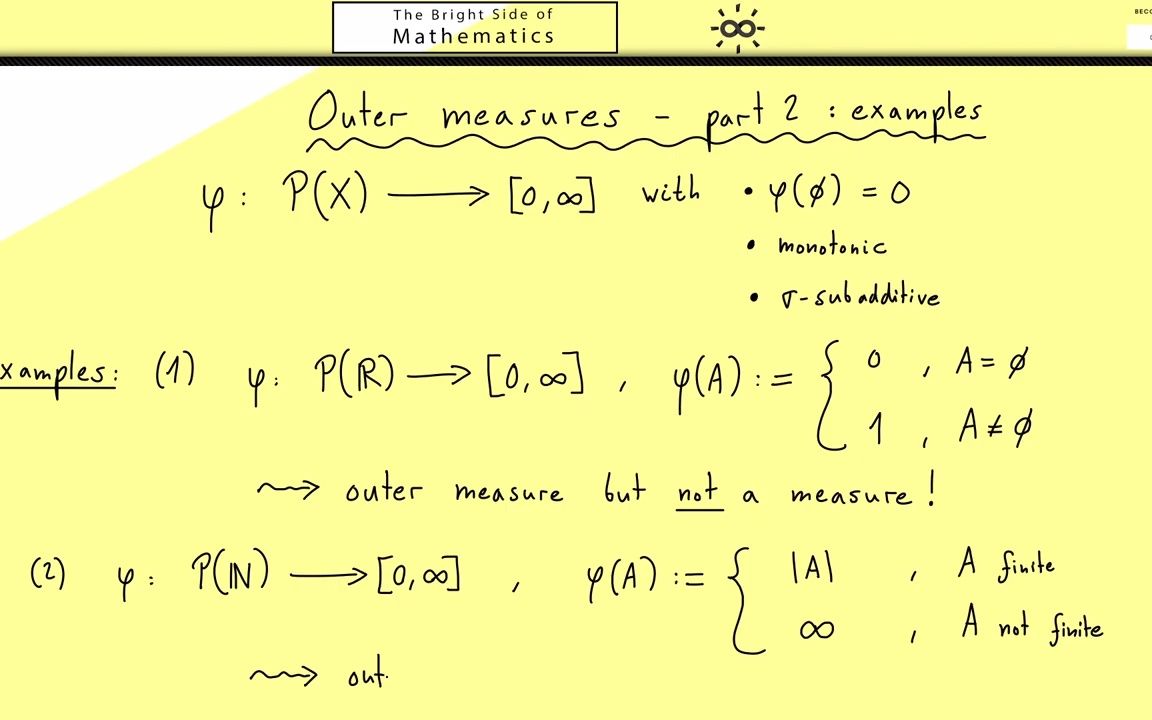 The Bright Side of
Mathematics
BECO
Outer measures - part 2 : examples
φ : P(X) ⟶ [0,∞] with • φ(ø) = 0
• monotonic
• σ-subadditive
xamples: (1) φ: P(ℝ) ⟶ [0,∞] , φ(A) := { 0 , A = ø
1 , A ≠ ø
⇝ outer measure but not a measure!
(2) φ : P(ℕ) ⟶ [0,∞] , φ(A) := { |A| , A finite
∞ , A not finite
⇝ out